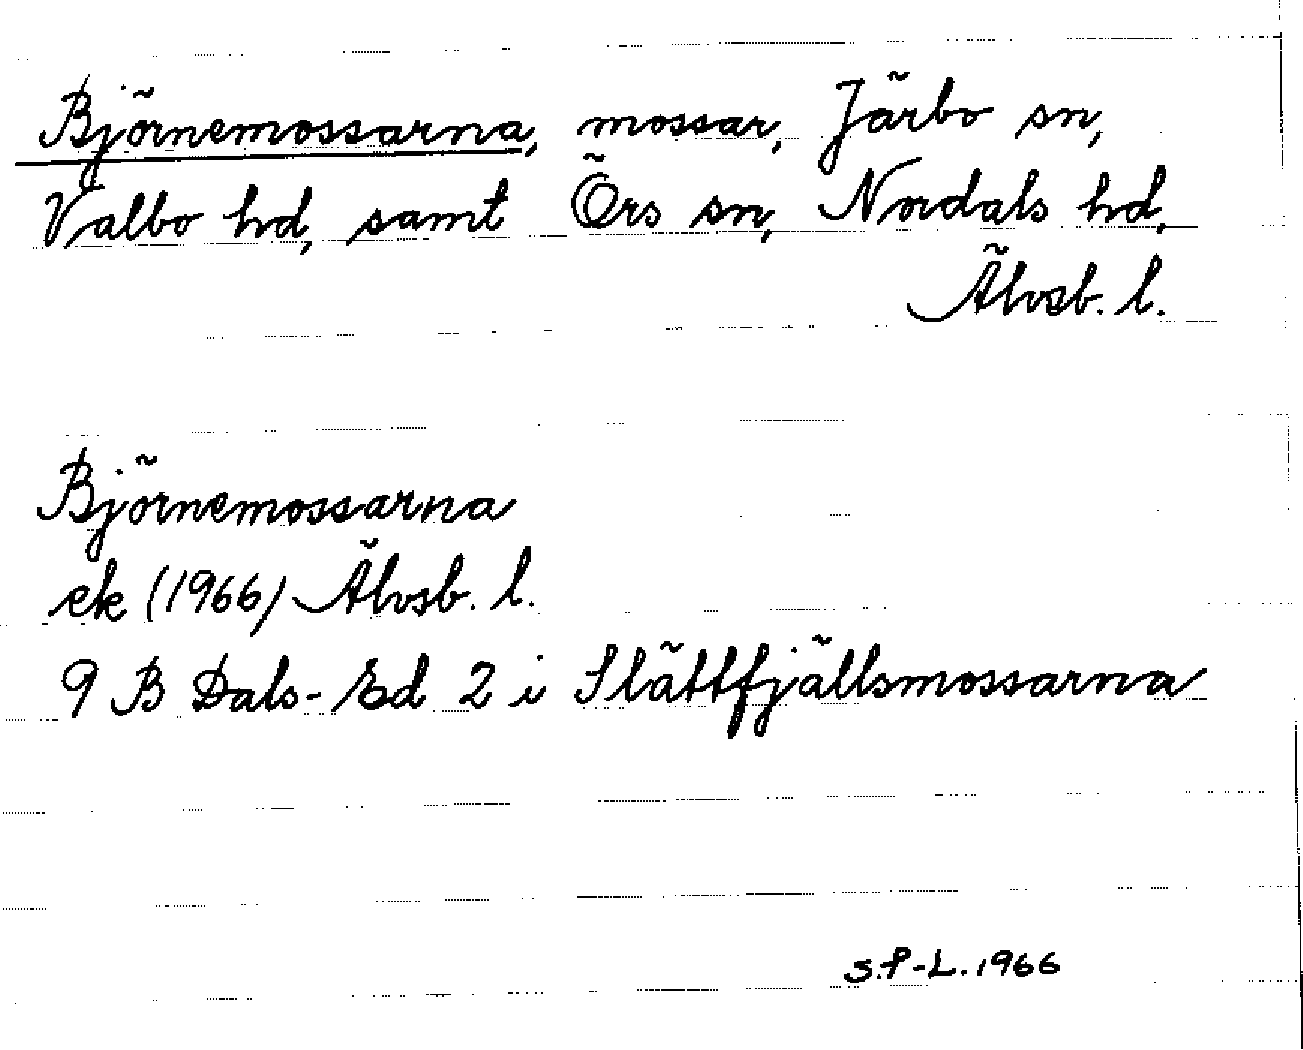 Björnemossarna, mossar, Järbo sn,
Valbo hd, samt Örs sn, Nordals hd,
Älvsb. l.
Björnemossarna
ek (1966) Älvsb. l.
9 B Dals-Ed 2 i Slättfjällsmossarna
S.P-L. 1966